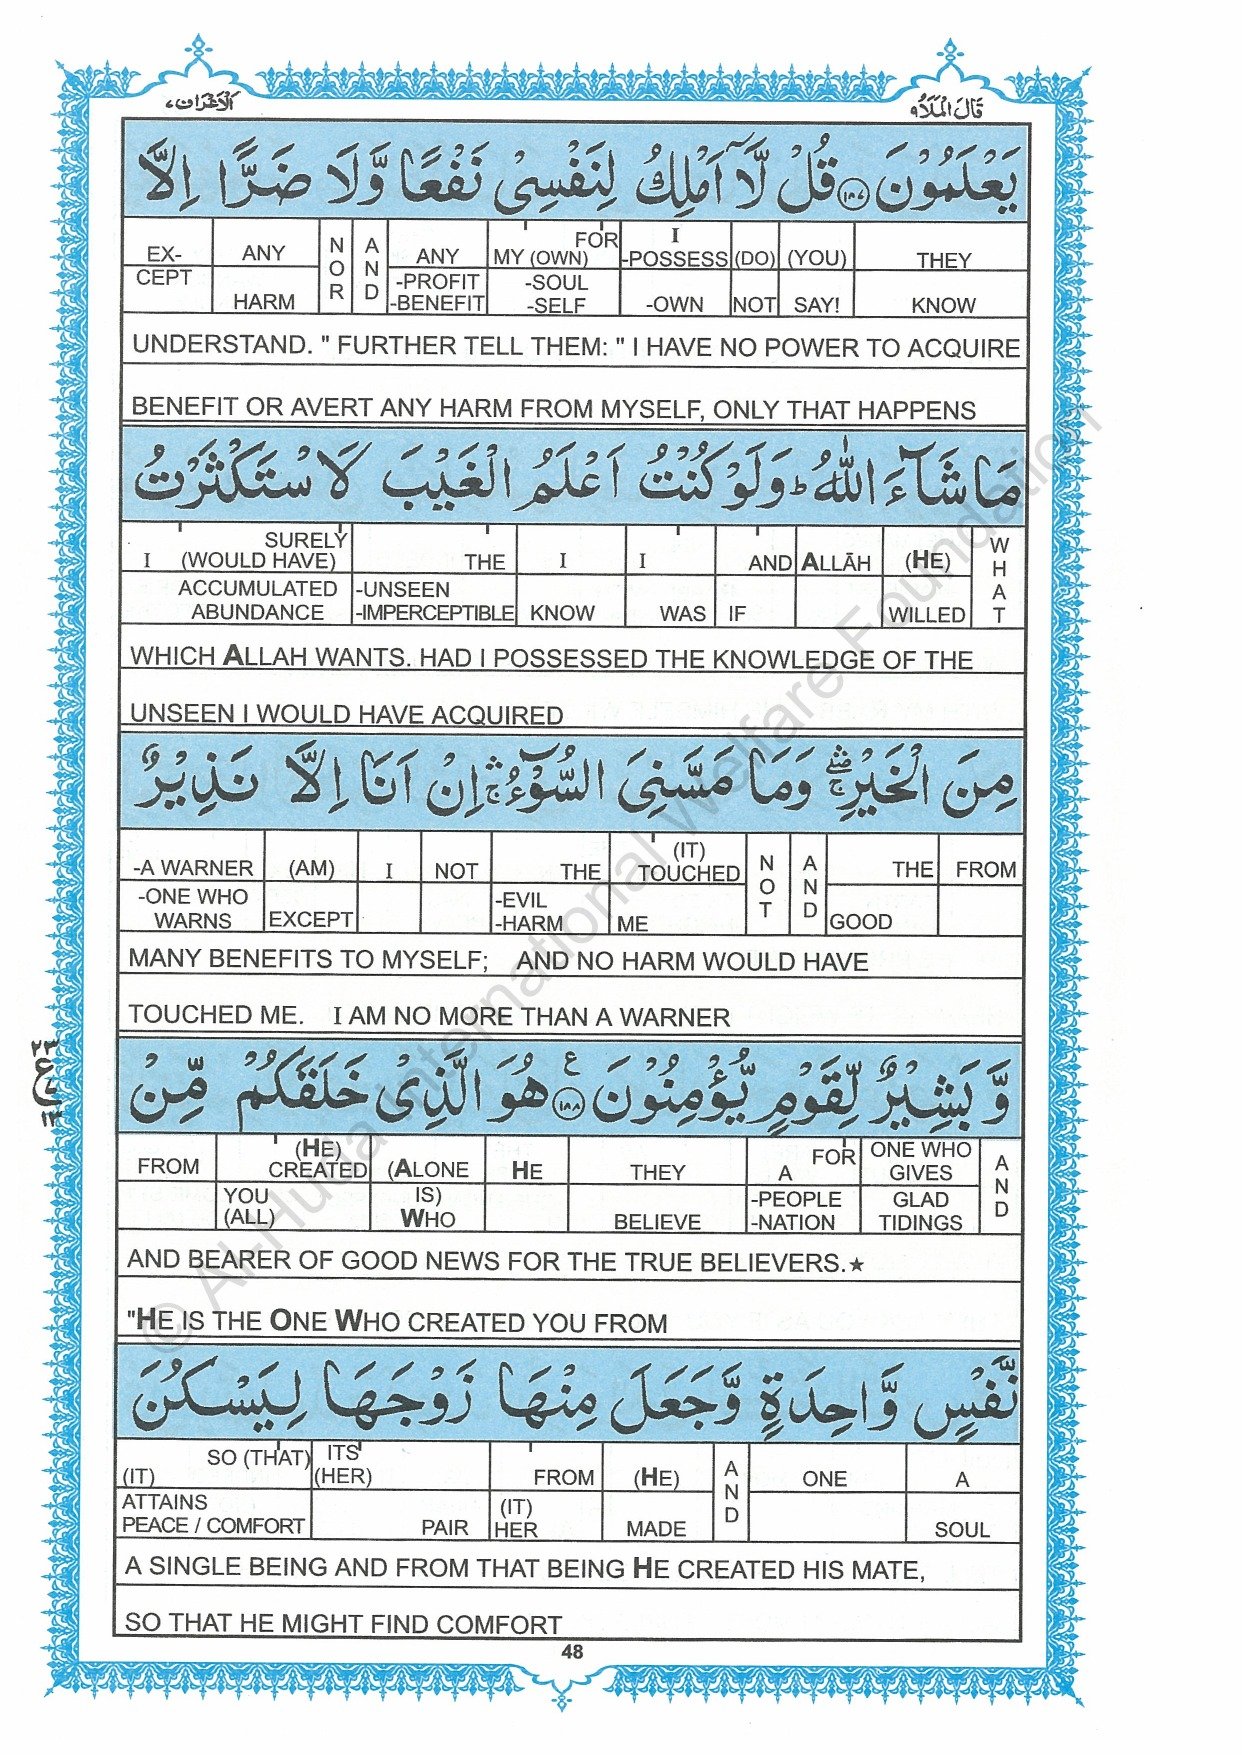 الاعراف ٧
قَالَ الْمَلَاُ ٩
يَعْلَمُوْنَ ﴿١٨٧﴾ قُلْ لَّاۤ اَمْلِكُ لِنَفْسِیْ نَفْعًا وَّلَا ضَرًّا اِلَّا
EX- ANY N O R A N D ANY FOR MY (OWN) I -POSSESS (DO) (YOU) THEY
CEPT HARM -PROFIT -BENEFIT -SOUL -SELF -OWN NOT SAY! KNOW
UNDERSTAND. " FURTHER TELL THEM: " I HAVE NO POWER TO ACQUIRE
BENEFIT OR AVERT ANY HARM FROM MYSELF, ONLY THAT HAPPENS
مَا شَآءَ اللّٰهُ ؕ وَلَوْ كُنْتُ اَعْلَمُ الْغَيْبَ لَا سْتَكْثَرْتُ
I SURELY (WOULD HAVE) THE I I AND ALLĀH (HE) W H A T
ACCUMULATED ABUNDANCE -UNSEEN -IMPERCEPTIBLE KNOW WAS IF WILLED
WHICH ALLAH WANTS. HAD I POSSESSED THE KNOWLEDGE OF THE
UNSEEN I WOULD HAVE ACQUIRED
مِنَ الْخَيْرِ ۛۖۚ وَمَا مَسَّنِیَ السُّوْٓءُ ۛۚ اِنْ اَنَا اِلَّا نَذِيْرٌ
-A WARNER (AM) I NOT THE (IT) TOUCHED N O T A N D THE FROM
-ONE WHO WARNS EXCEPT -EVIL -HARM ME GOOD
MANY BENEFITS TO MYSELF; AND NO HARM WOULD HAVE
TOUCHED ME. I AM NO MORE THAN A WARNER
وَّ بَشِيْرٌ لِّقَوْمٍ يُّؤْمِنُوْنَ ﴿١٨٨﴾ ع هُوَ الَّذِیْ خَلَقَكُمْ مِّنْ
٢٣
ع
١٣
FROM (HE) CREATED (ALONE HE THEY FOR A ONE WHO GIVES A N D
YOU (ALL) IS) WHO BELIEVE -PEOPLE -NATION GLAD TIDINGS
AND BEARER OF GOOD NEWS FOR THE TRUE BELIEVERS.★
"HE IS THE ONE WHO CREATED YOU FROM
نَّفْسٍ وَّاحِدَةٍ وَّجَعَلَ مِنْهَا زَوْجَهَا لِيَسْكُنَ
(IT) SO (THAT) ITS (HER) FROM (HE) A N D ONE A
ATTAINS PEACE / COMFORT PAIR (IT) HER MADE SOUL
A SINGLE BEING AND FROM THAT BEING HE CREATED HIS MATE,
SO THAT HE MIGHT FIND COMFORT
48
© Al-Huda International Welfare Foundation